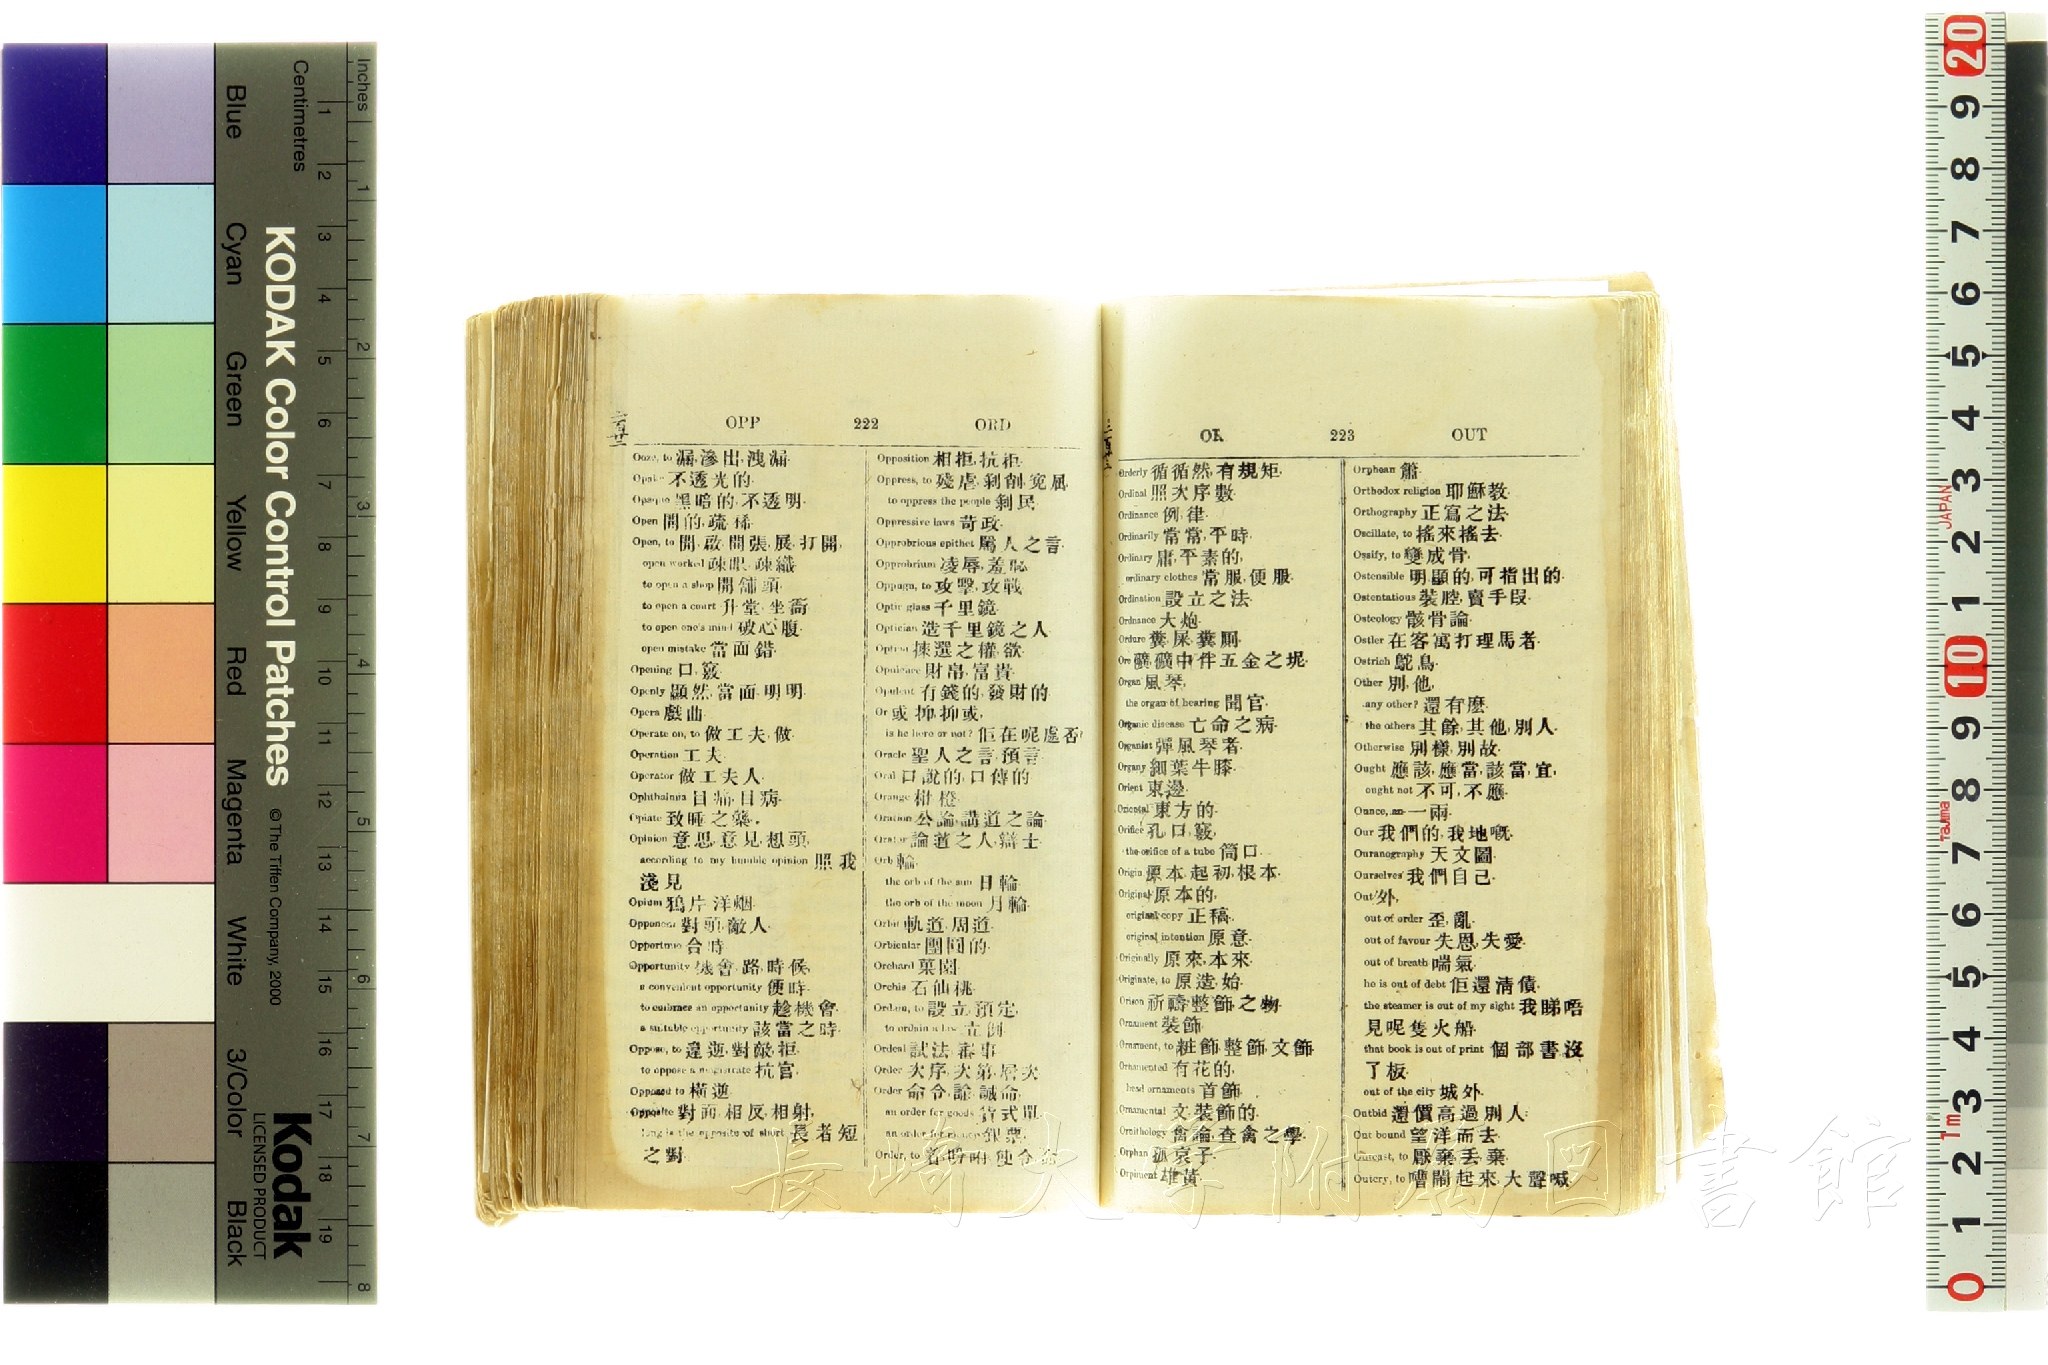 Inches
Centimetres
KODAK Color Control Patches
© The Tiffen Company, 2000
Blue
Cyan
Green
Yellow
Red
Magenta
White
3/Color
Black
Kodak
LICENSED PRODUCT
OPP 222 ORD
Ooze, to 漏,滲出,洩漏
Opake 不透光的
Opaque 黑暗的,不透明
Open 開的,疏,稀
Open, to 開,啟,開張,展,打開,
open worked 疎眼,疎織
to open a shop 開舖頭
to open a court 升堂,坐衙
to open one's mind 破心腹
open mistake 當面錯
Opening 口,竅
Openly 顯然,當面,明明
Opera 戲曲
Operate on, to 做工夫,做
Operation 工夫
Operator 做工夫人
Ophthalmia 目痛,目病
Opiate 致睡之藥,
Opinion 意思,意見,想頭
according to my humble opinion 照我
淺見
Opium 鴉片,洋烟
Opponent 對頭,敵人
Opportune 合時
Opportunity 機會,路,時候,
a convenient opportunity 便時
to embrace an opportunity 趁機會
a suitable opportunity 該當之時
Oppose, to 違逆,對敵,拒
to oppose a magistrate 抗官
Opposed to 橫逆
Opposite 對面,相反,相射,
long is the opposite of short 長者短
之對
Opposition 相拒,抗拒
Oppress, to 殘虐,剝削,寃屈
to oppress the people 剝民
Oppressive laws 苛政
Opprobrious epithet 罵人之言
Opprobrium 凌辱,羞恥
Oppugn, to 攻擊,攻戰
Optic glass 千里鏡
Optician 造千里鏡之人
Option 揀選之權,欲
Opulence 財帛,富貴
Opulent 有錢的,發財的
Or 或,抑,抑或,
is he here or not? 佢在呢處否
Oracle 聖人之言,預言
Oral 口說的,口傳的
Orange 柑,橙
Oration 公論,講道之論
Orator 論道之人,辯士
Orb 輪
the orb of the sun 日輪
the orb of the moon 月輪
Orbit 軌道,周道
Orbicular 團圓的
Orchard 菓園
Orchis 石仙桃
Ordain, to 設立,預定,
to ordain a law 立例
Ordeal 試法,審事
Order 次序,次第,層次
Order 命令,諭,誡命
an order for goods 貨式單
Order, to
OR 223 OUT
Orderly 循循然,有規矩
Ordinal 照次序數
Ordinance 例,律
Ordinarily 當當,平時
Ordinary 庸,平素的,
ordinary clothes 常服,便服
Ordination 設立之法
Ordnance 大炮
Ordure 糞,屎,糞屙
Ore 礦,礦中件,五金之坭
Organ 風琴,
the organ of hearing 聞官
Organic disease 亡命之病
Organist 彈風琴者
Organy 細葉牛膝
Orient 東邊
Oriental 東方的
Orifice 孔,口,竅,
the orifice of a tube 筒口
Origin 原本,起初,根本
Original 原本的,
original copy 正稿
original intention 原意
Originally 原來,本來
Originate, to 原造,始
Orison 祈禱,整飾之物
Ornament 裝飾
Ornament, to 粧飾,整飾,文飾
Ornamented 有花的,
head ornaments 首飾
Ornamental 文,裝飾的
Ornithology 禽論,查禽之學
Orphan 孤哀子
Orpiment 雄黃
Orphean 簫
Orthodox religion 耶穌教
Orthography 正寫之法
Oscillate, to 搖來搖去
Ossify, to 變成骨
Ostensible 明顯的,可指出的
Ostentatious 裝腔,賣手段
Osteology 骸骨論
Ostler 在客寓打理馬者
Ostrich 鴕鳥
Other 別,他,
any other? 還有麼
the others 其餘,其他,別人
Otherwise 別樣,別故
Ought 應該,應當,該當,宜,
ought not 不可,不應
Ounce, an 一兩
Our 我們的,我地嘅
Ouranography 天文圖
Ourselves 我們自己
Out 外,
out of order 歪亂
out of favour 失恩,失愛
out of breath 喘氣
he is out of debt 佢還清債
the steamer is out of my sight 我睇唔
見呢隻火船
that book is out of print 個部書沒
了板
out of the city 城外
Outbid 還價高過別人
Out bound 望洋而去
Outcast, to 厭棄,丟棄
Outcry, to 嘈鬧起來,大聲喊
長崎大学附属図書館
JAPAN
Tajima
1m